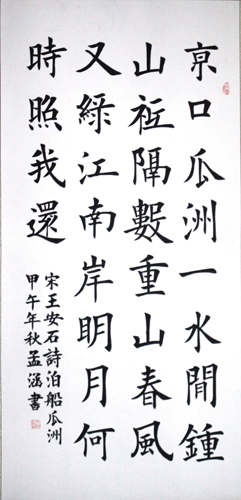 亰口瓜洲一水間鍾
山祗隔數重山春風
又綠江南岸明月何
時照我還
宋王安石詩泊船瓜洲
甲午年秋孟涵書